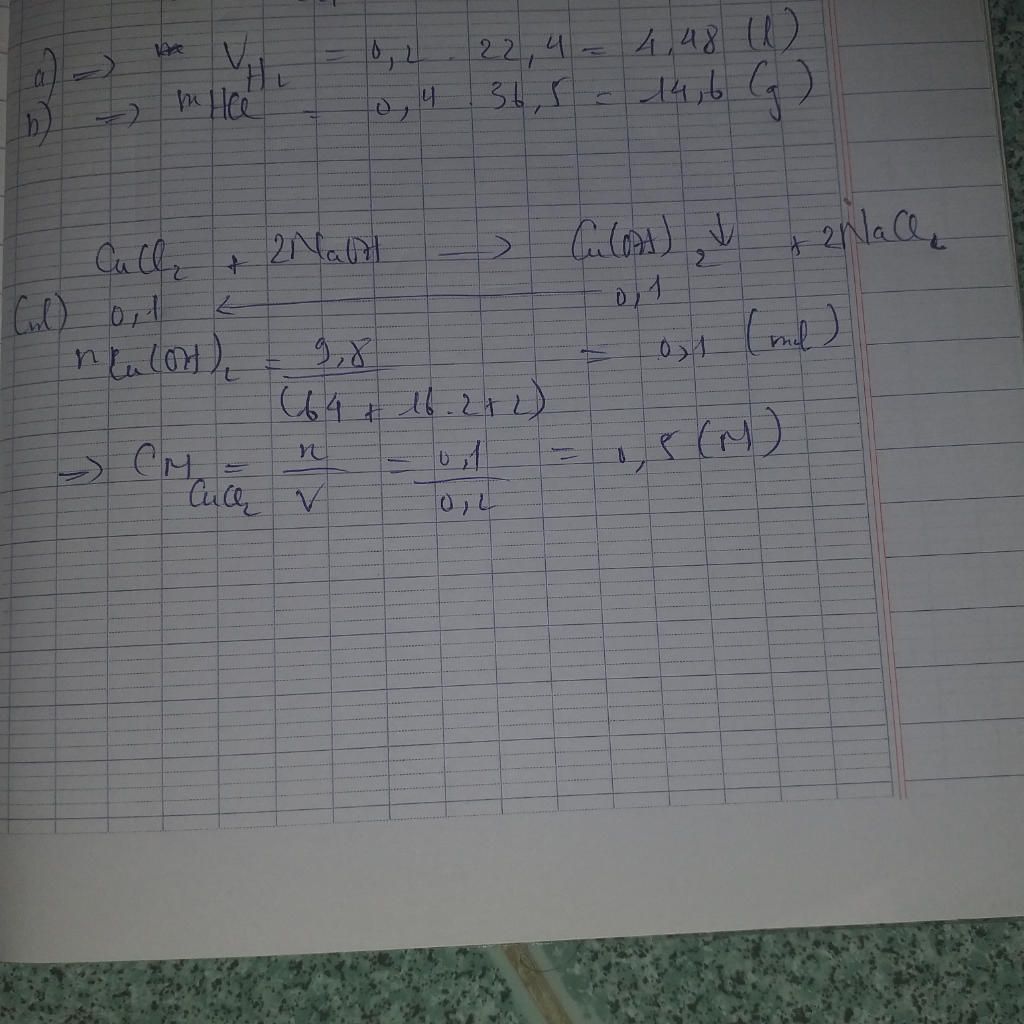 a) => V H₂ = 0,2 . 22,4 = 4,48 (l)
b) => mHCl = 0,4 . 36,5 = 14,6 (g)
CuCl₂ + 2NaOH —> Cu(OH)₂↓ + 2NaCl₂
(mol) 0,1 <— 0,1
nCu(OH)₂ = 9,8 / (64 + 16.2+2) = 0,1 (mol)
=> CM CuCl₂ = n / V = 0,1 / 0,2 = 0,5 (M)